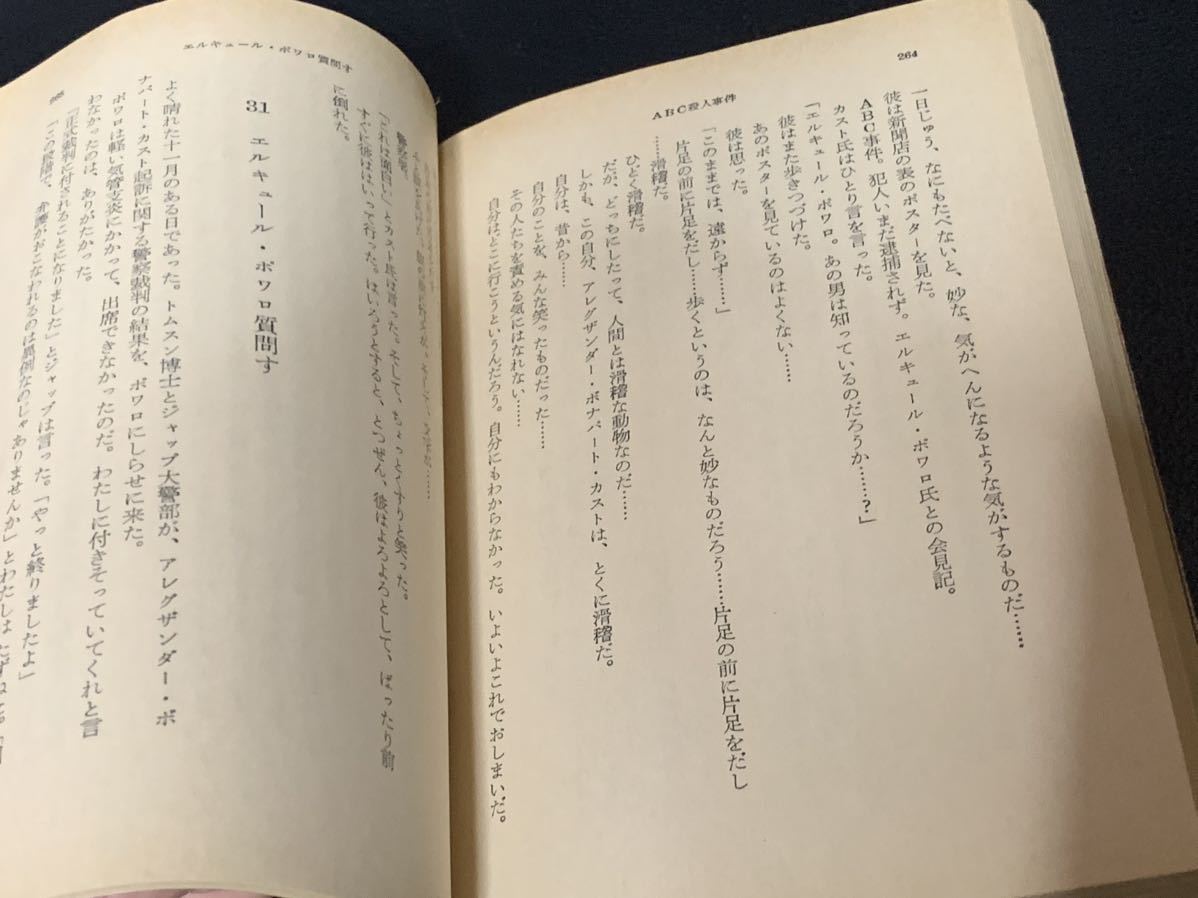 264
ABC殺人事件
一日じゅう、なにもたべないと、妙な、気がへんになるような気がするものだ……
彼は新聞店の表のポスターを見た。
ABC事件。犯人いまだ逮捕されず。エルキュール・ポワロ氏との会見記。
カスト氏はひとり言を言った。
「エルキュール・ポワロ。あの男は知っているのだろうか……?」
彼はまた歩きつづけた。
あのポスターを見ているのはよくない……
彼は思った。
「このままでは、遠からず……」
片足の前に片足をだし……歩くというのは、なんと妙なものだろう……片足の前に片足をだし
……滑稽だ。
ひどく滑稽だ。
だが、どっちにしたって、人間とは滑稽な動物なのだ……
しかも、この自分、アレグザンダー・ボナパート・カストは、とくに滑稽だ。
自分は、昔から……
自分のことを、みんな笑ったものだった……
その人たちを責める気にはなれない……
自分はどこに行こうというんだろう。自分にもわからなかった。いよいよこれでおしまいだ。
警察署。
「これは面白い」とカスト氏は言った。そして、ちょっとくすりと笑った。
すぐに彼ははいって行った。はいろうとすると、とつぜん、彼はよろよろとして、ばったり前
に倒れた。
エルキュール・ポワロ質問す
265
31 エルキュール・ポワロ質問す
よく晴れた十一月のある日であった。トムスン博士とジャップ大警部が、アレグザンダー・ボ
ナパート・カスト起訴に関する警察裁判の結果を、ポワロにしらせに来た。
ポワロは軽い気管支炎にかかって、出席できなかったのだ。わたしに付きそっていてくれと言
わなかったのは、ありがたかった。
「正式裁判に付されることになりました」とジャップは言った。「やっと終りましたよ」
「この段階で、弁護がおこなわれるのは異例なのじゃありませんか」とわたしは